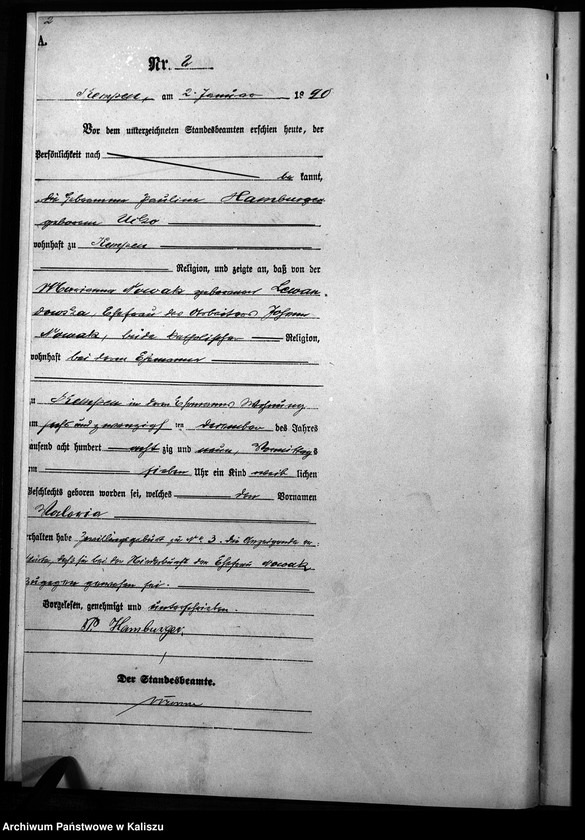 2
A.
Nr. 2
Kempen, am 2. Januar 1890
Vor dem unterzeichneten Standesbeamten erschien heute, der
Persönlichkeit nach
be kannt,
die Hebamme Pauline Hamburger
geborene
wohnhaft zu Kempen
Religion, und zeigte an, daß von der
Marianna Nowak geborenen Lewan-
dowska, Ehefrau des Arbeiters Johann
Nowak, beide katholischer Religion,
wohnhaft bei deren Ehemann
zu Kempen in deren Ehemanns Wohnung
am sechsundzwanzigsten Dezember des Jahres
tausend acht hundert acht zig und neun, Vormittags
um sieben Uhr ein Kind weib lichen
Geschlechts geboren worden sei, welches den Vornamen
Valeria
erhalten habe Zwillingsgeburt zu No 3. Die Anzeigende er-
klärte, daß sie bei der Niederkunft der Ehefrau Nowak
zugegen gewesen sei.
Vorgelesen, genehmigt und unterschrieben.
P. Hamburger.
Der Standesbeamte.
Archiwum Państwowe w Kaliszu